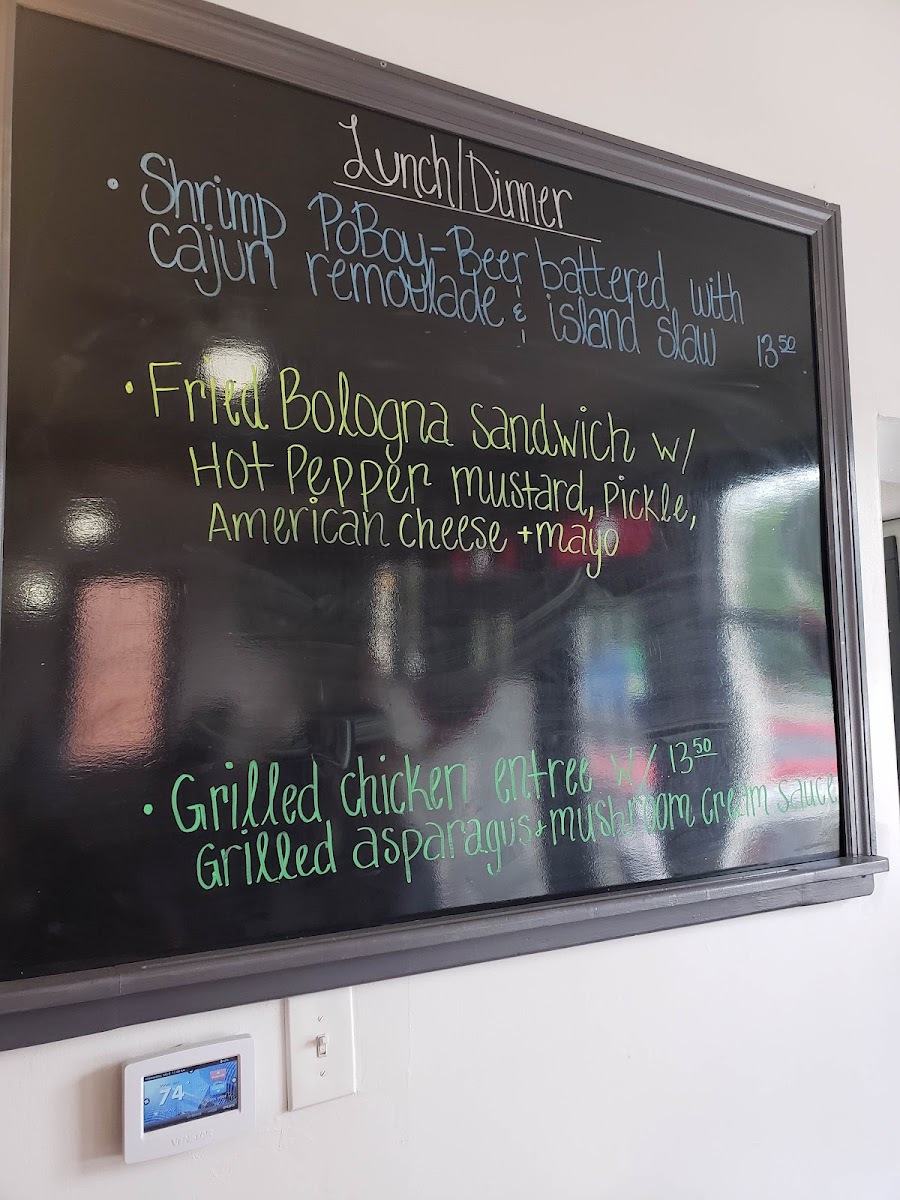 Lunch/Dinner
• Shrimp PoBoy-Beer battered, with
cajun remoulade & island slaw 13.50
• Fried Bologna sandwich w/
Hot Pepper mustard, Pickle,
American cheese + mayo
• Grilled chicken entree w/ 13.50
Grilled asparagus + mushroom cream sauce
74